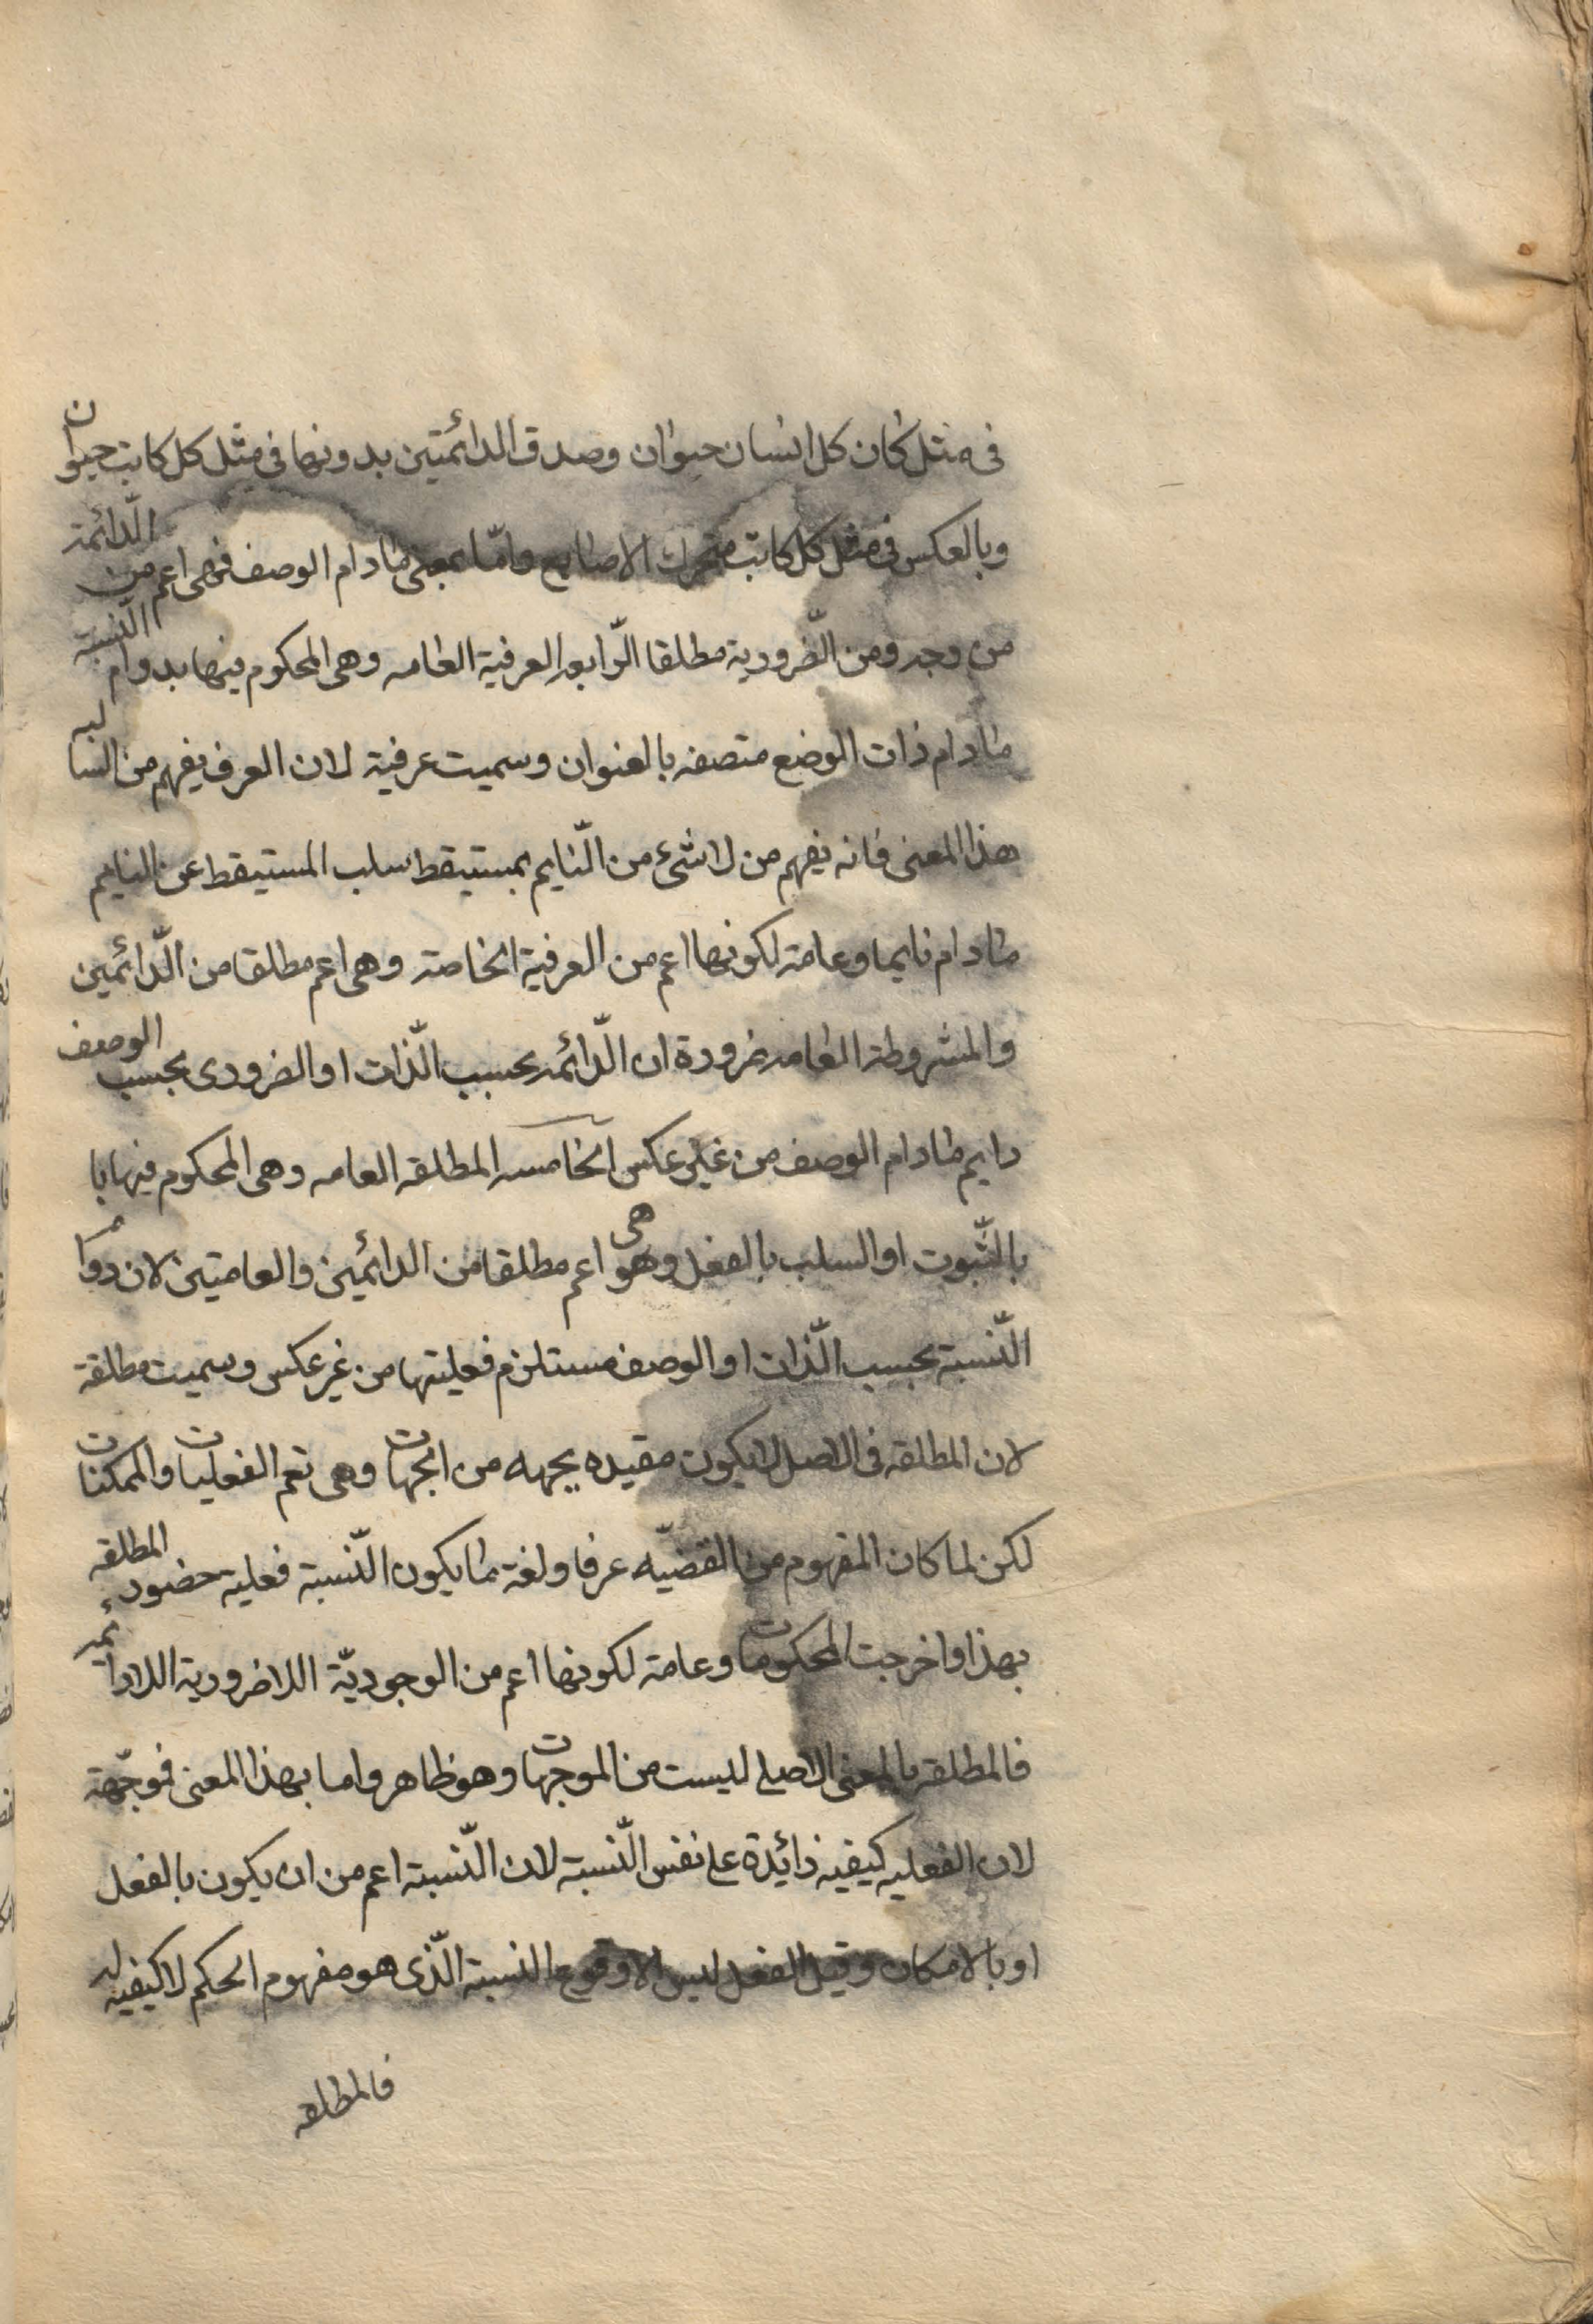 فى مثل كان كل انسان حيوان وصدق الدائمتين بدونها فى مثل كل كاتب حيوان
وبالعكس فى مثل كل كاتب متحرك الاصابع وامّا بمعنى مادام الوصف فهى اعم من الدّائمة
من وجه ومن الضّرورية مطلقا الرّابعه العرفية العامه وهى المحكوم فيها بدوام النّسبة
مادام ذات الوضع متصفه بالعنوان وسميت عرفية لان العرف يفهم من السالبه
هذا المعنى فانه يفهم من لا شئ من النّايم بمستيقظ سلب المستيقظ عن النايم
مادام نايما وعامة لكونها اعم من العرفية الخاصة وهى اعم مطلقا من الدّائمين
والمشروطة العامه ضرورة ان الدّائمه بحسب الذّات او الضرورى بحسب الوصف
دايم مادام الوصف من غير عكس الخامسه المطلقه العامه وهى المحكوم فيها با
بالثّبوت او السلب بالفعل وهو هى اعم مطلقا من الدائمين والعامتين لان دوام
النّسبة بحسب الذّات او الوصف مستلزم فعليتها من غير عكس وسميت مطلقة
لان المطلقه فى الاصل لا يكون مقيده بجهه من الجهات وهى تعم الفعليات والممكنات
لكن لما كان المفهوم من القضيّه عرفا ولغة ما يكون النّسبة فعلية حضور المطلقه
بهذا واخرجت المحكومات وعامة لكونها اعم من الوجوديّة اللاضرورية اللادائمه
فالمطلقه بالمعنى الاصلى ليست من الموجهات وهو ظاهر واما بهذا المعنى فموجّهة
لان الفعليه كيفية زائدة على نفس النّسبة لان النّسبة اعم من ان يكون بالفعل
او بالامكان وقيل الفعل ليس الا وقوع النسبة الّذى هو مفهوم الحكم لا كيفيه له
فالمطلقه